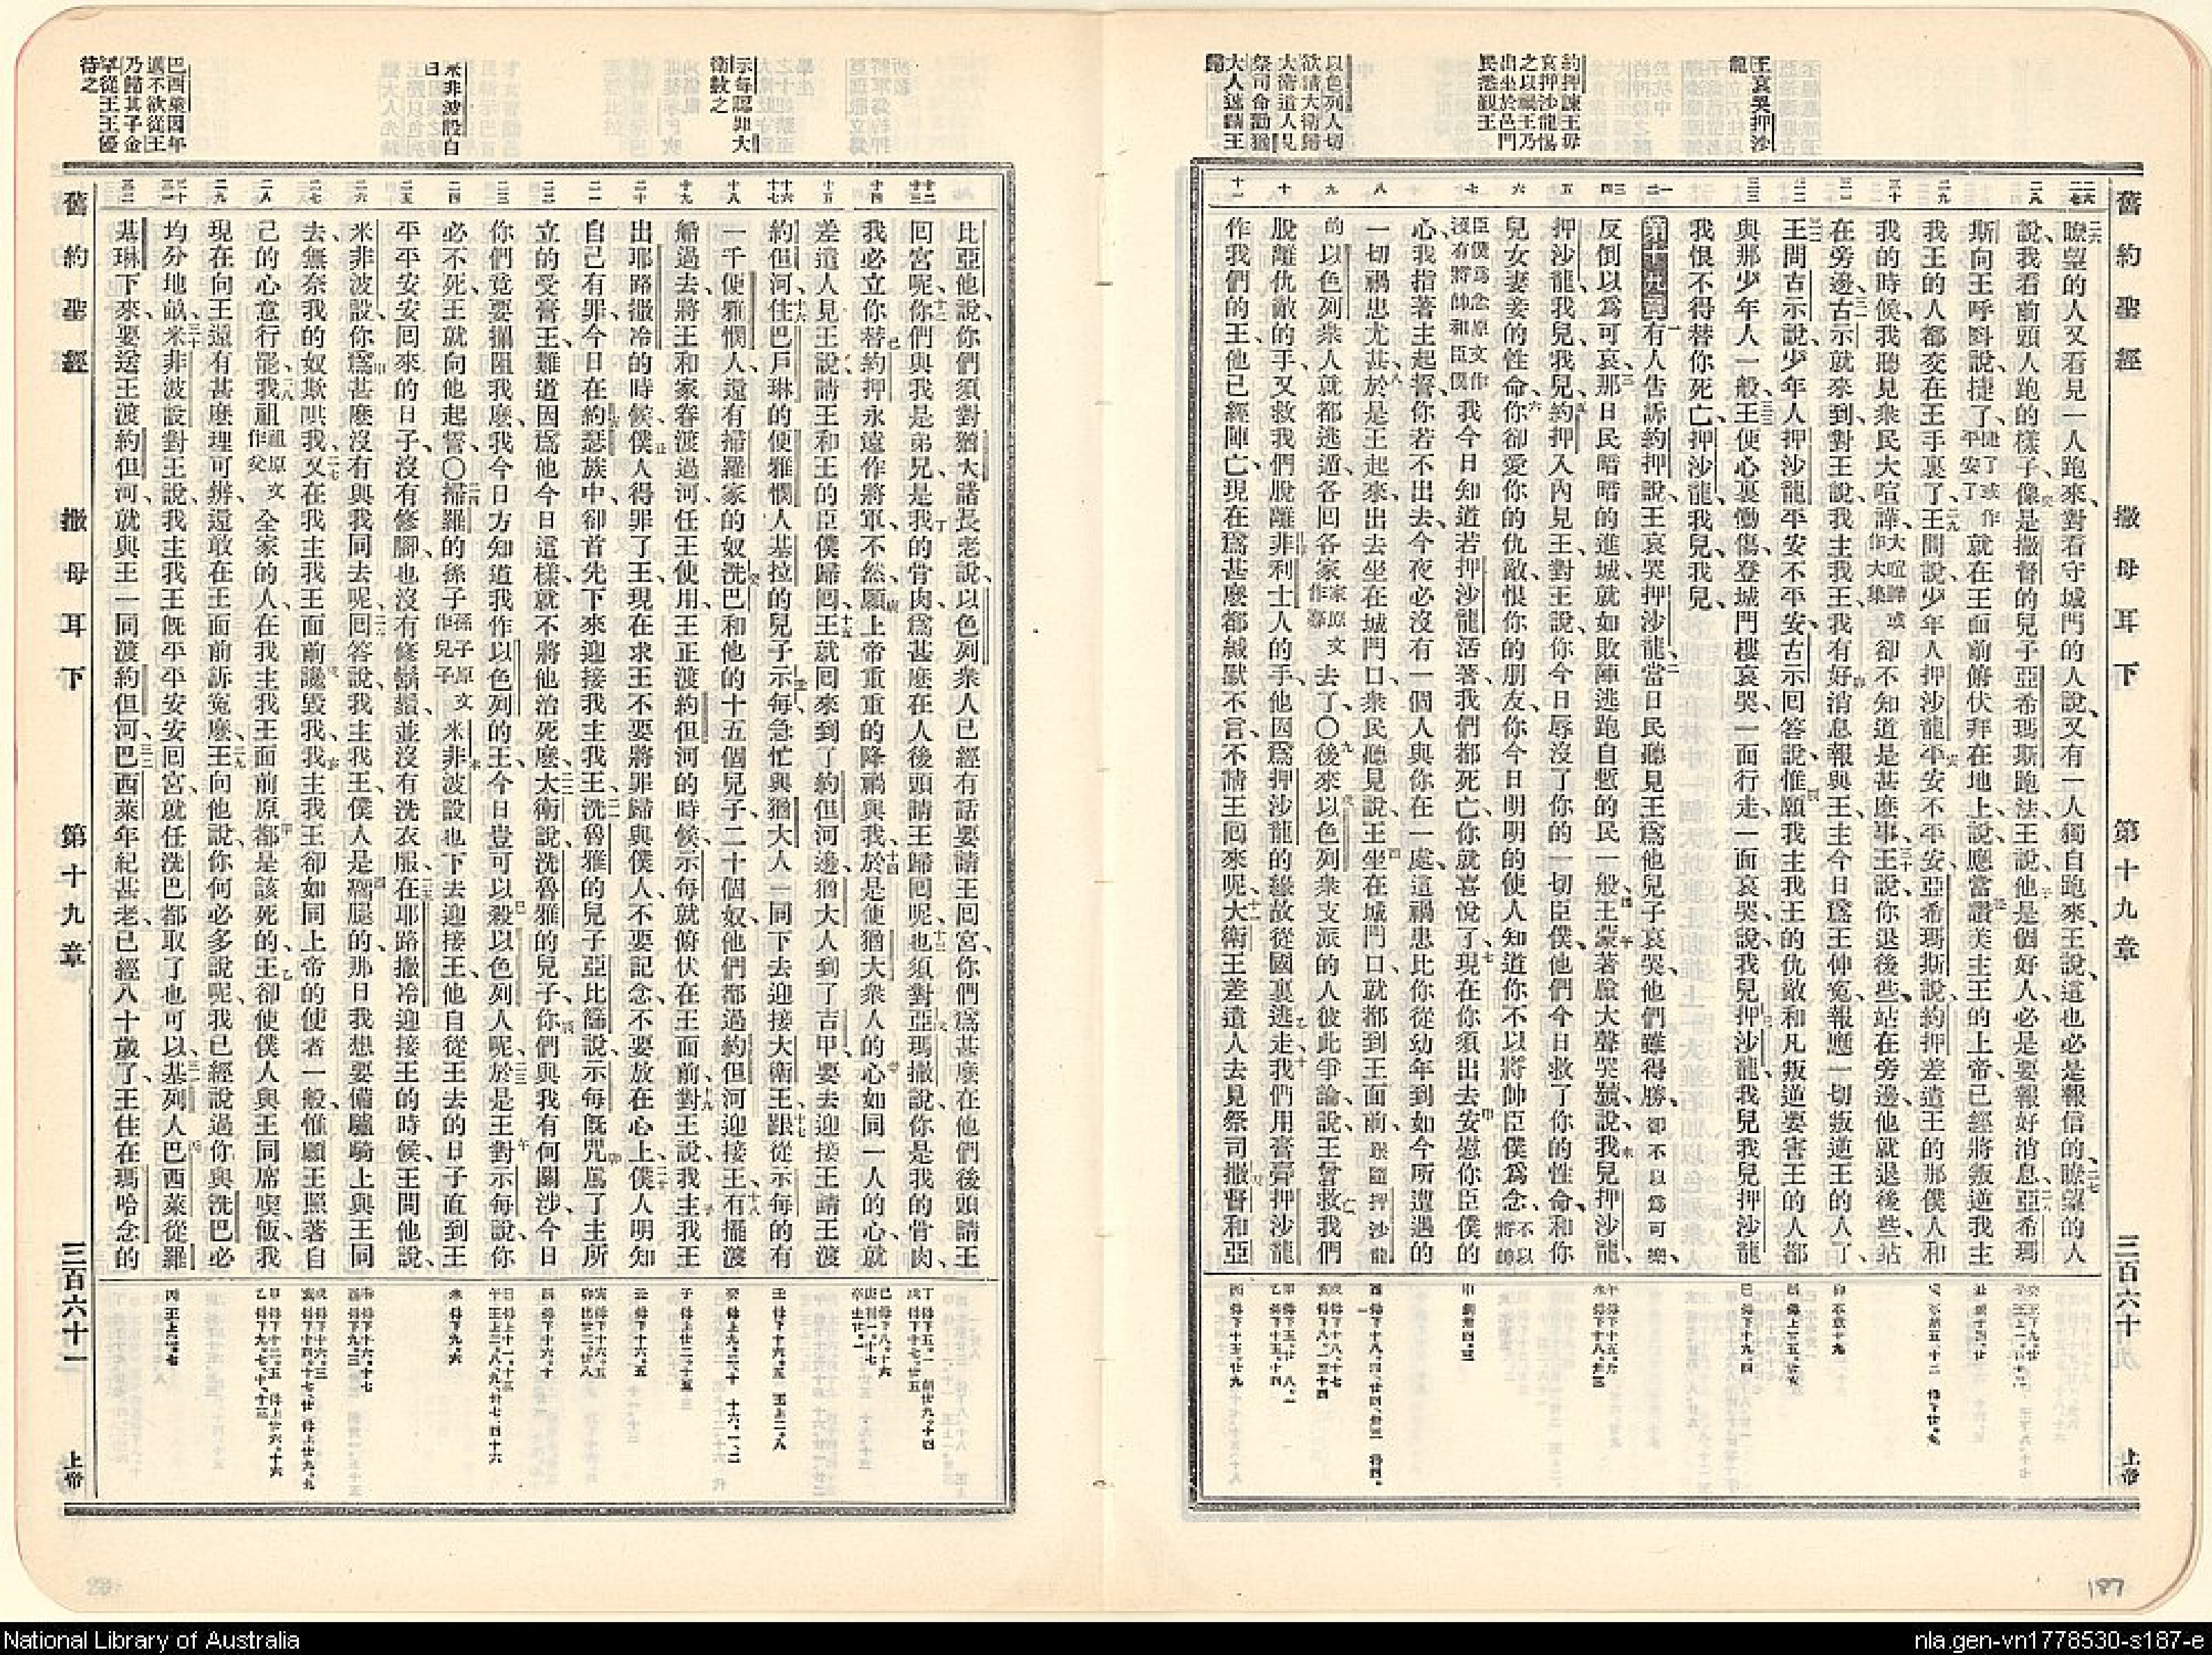 舊約聖經 撒母耳下 第十九章 三百六十 上帝
王哀哭押沙龍
約押諫王毋哀押沙龍惕之以禍王乃出坐於邑門民悉覲王
以色列人切欲請大衛歸大衛遣人見祭司命勸猶大人速請王歸
瞭望的人又看見一人跑來、對看守城門的人說、又有一人獨自跑來、王說、這也必是報信的、瞭望的人
說、我看前頭人跑的樣子、像是撒督的兒子亞希瑪斯跑法、王說、他是個好人、必是要報好消息、亞希瑪
斯向王呼呌說、捷了、捷了或作平安了就在王面前俯伏拜在地上、說、應當讚美主王的上帝、已經將叛逆我主
我王的人、都交在王手裏了、王問說、少年人押沙龍平安不平安、亞希瑪斯說、約押差遣王的那僕人和
我的時候、我聽見衆民大喧譁、大喧譁或作大集卻不知道是甚麼事、王說、你退後些、站在旁邊、他就退後些、站
在旁邊、古示就來到、對王說、我主我王、我有好消息報與王、主今日爲王伸冤、報應一切叛逆王的人了、
王問古示說、少年人押沙龍平安不平安、古示回答說、惟願我主我王的仇敵、和凡叛逆要害王的人、都
與那少年人一般、王便心裏慟傷、登城門樓哀哭、一面行走、一面哀哭、說、我兒押沙龍、我兒我兒押沙龍、
我恨不得替你死亡、押沙龍、我兒、我兒、
第十九章有人告訴約押說、王哀哭押沙龍、當日民聽見王爲他兒子哀哭、他們雖得勝、卻不以爲可樂、
反倒以爲可哀、那日民暗暗的進城、就如敗陣逃跑自慙的民一般、王蒙著臉大聲哭號、說、我兒押沙龍、
押沙龍、我兒、我兒、約押入內見王、對王說、你今日辱沒了你的一切臣僕、他們今日救了你的性命、和你
兒女妻妾的性命、你卻愛你的仇敵、恨你的朋友、你今日明明的使人知道你不以將帥臣僕爲念、不以將帥
臣僕爲念原文作沒有將帥和臣僕我今日知道若押沙龍活著、我們都死亡、你就喜悅了、現在你須出去安慰你臣僕的
心、我指著主起誓、你若不出去、今夜必沒有一個人與你在一處、這禍患比你從幼年到如今所遭遇的
一切禍患尤甚、於是王起來、出去坐在城門口、衆民聽見說、王坐在城門口、就都到王面前、跟隨押沙龍
的以色列衆人就都逃遁、各回各家、家原文作幕去了、〇後來以色列衆支派的人彼此爭論、說、王曾救我們
脫離仇敵的手、又救我們脫離非利士人的手、他因爲押沙龍的緣故、從國裏逃走、我們用膏膏押沙龍
作我們的王、他已經陣亡、現在爲甚麼都緘默不言、不請王囘來呢、大衛王差遣人去見祭司撒督和亞
示每認罪大衛赦之
米非波設自白
巴西萊因年邁不欲從王乃歸其子金罕從王王優待之
比亞他、說、你們須對猶大諸長老說、以色列衆人已經有話要請王囘宮、你們爲甚麼在他們後頭請王
囘宮呢、你們與我是弟兄、是我的骨肉、爲甚麼在人後頭請王歸囘呢、也須對亞瑪撒說、你是我的骨肉、
我必立你替約押永遠作將軍、不然、願上帝重重的降禍與我、於是使猶大衆人的心如同一人的心、就
差遣人見王說、請王和王的臣僕歸囘、王就囘來到了約但河邊、猶大人到了吉甲、要去迎接王、請王渡
約但河、住巴戶琳的便雅憫人基拉的兒子示每、急忙與猶大人一同下去迎接大衛王、跟從示每的有
一千便雅憫人、還有掃羅家的奴洗巴和他的十五個兒子、二十個奴、他們都過約但河迎接王、有擺渡
船過去、將王和家眷渡過河、任王使用、王正渡約但河的時候、示每就俯伏在王面前、對王說、我主我王
出耶路撒冷的時候、僕人得罪了王、現在求王不要將罪歸與僕人、不要記念、不要放在心上、僕人明知
自己有罪、今日在約瑟族中、卻首先下來迎接我主我王、洗魯雅的兒子亞比篩說、示每旣咒罵了主所
立的受膏王、難道因爲他今日這樣、就不將他治死麼、大衛說、洗魯雅的兒子、你們與我有何關涉、今日
你們竟要攔阻我麼、我今日方知道我作以色列的王、今日豈可以殺以色列人呢、於是王對示每說、你
必不死、王就向他起誓、〇掃羅的孫子孫子原文作兒子米非波設也下去迎接王、他自從王去的日子、直到王
平平安安囘來的日子、沒有修腳、也沒有修鬍鬚、並沒有洗衣服、在耶路撒冷迎接王的時候、王問他說、
米非波設、你爲甚麼沒有與我同去呢、回答說、我主我王、僕人是瘸腿的、那日我想要備驢騎上與王同
去、無奈我的奴欺哄我、又在我主我王面前讒毀我、我主我王卻如同上帝的使者一般、惟願王照著自
己的心意行罷、我祖祖原文作父全家的人、在我主我王面前原都是該死的、王卻使僕人與王同席喫飯、我
現在向王還有甚麼理可辨、還敢在王面前訴冤麼、王向他說、你何必多說呢、我已經說過、你與洗巴必
均分地畝、米非波設對王說、我主我王旣平平安安囘宮、就任洗巴都取了也可以、基列人巴西萊從羅
基琳下來、要送王渡約但河、就與王一同渡約但河、巴西萊年紀甚老、已經八十歲了、王住在瑪哈念的
舊約聖經 撒母耳下 第十九章 三百六十一 上帝
187
National Library of Australia
nla.gen-vn1778530-s187-e